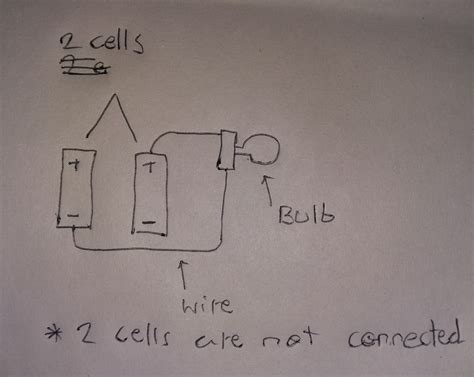 2 cells
+
+
-
-
Bulb
wire
* 2 cells are not connected